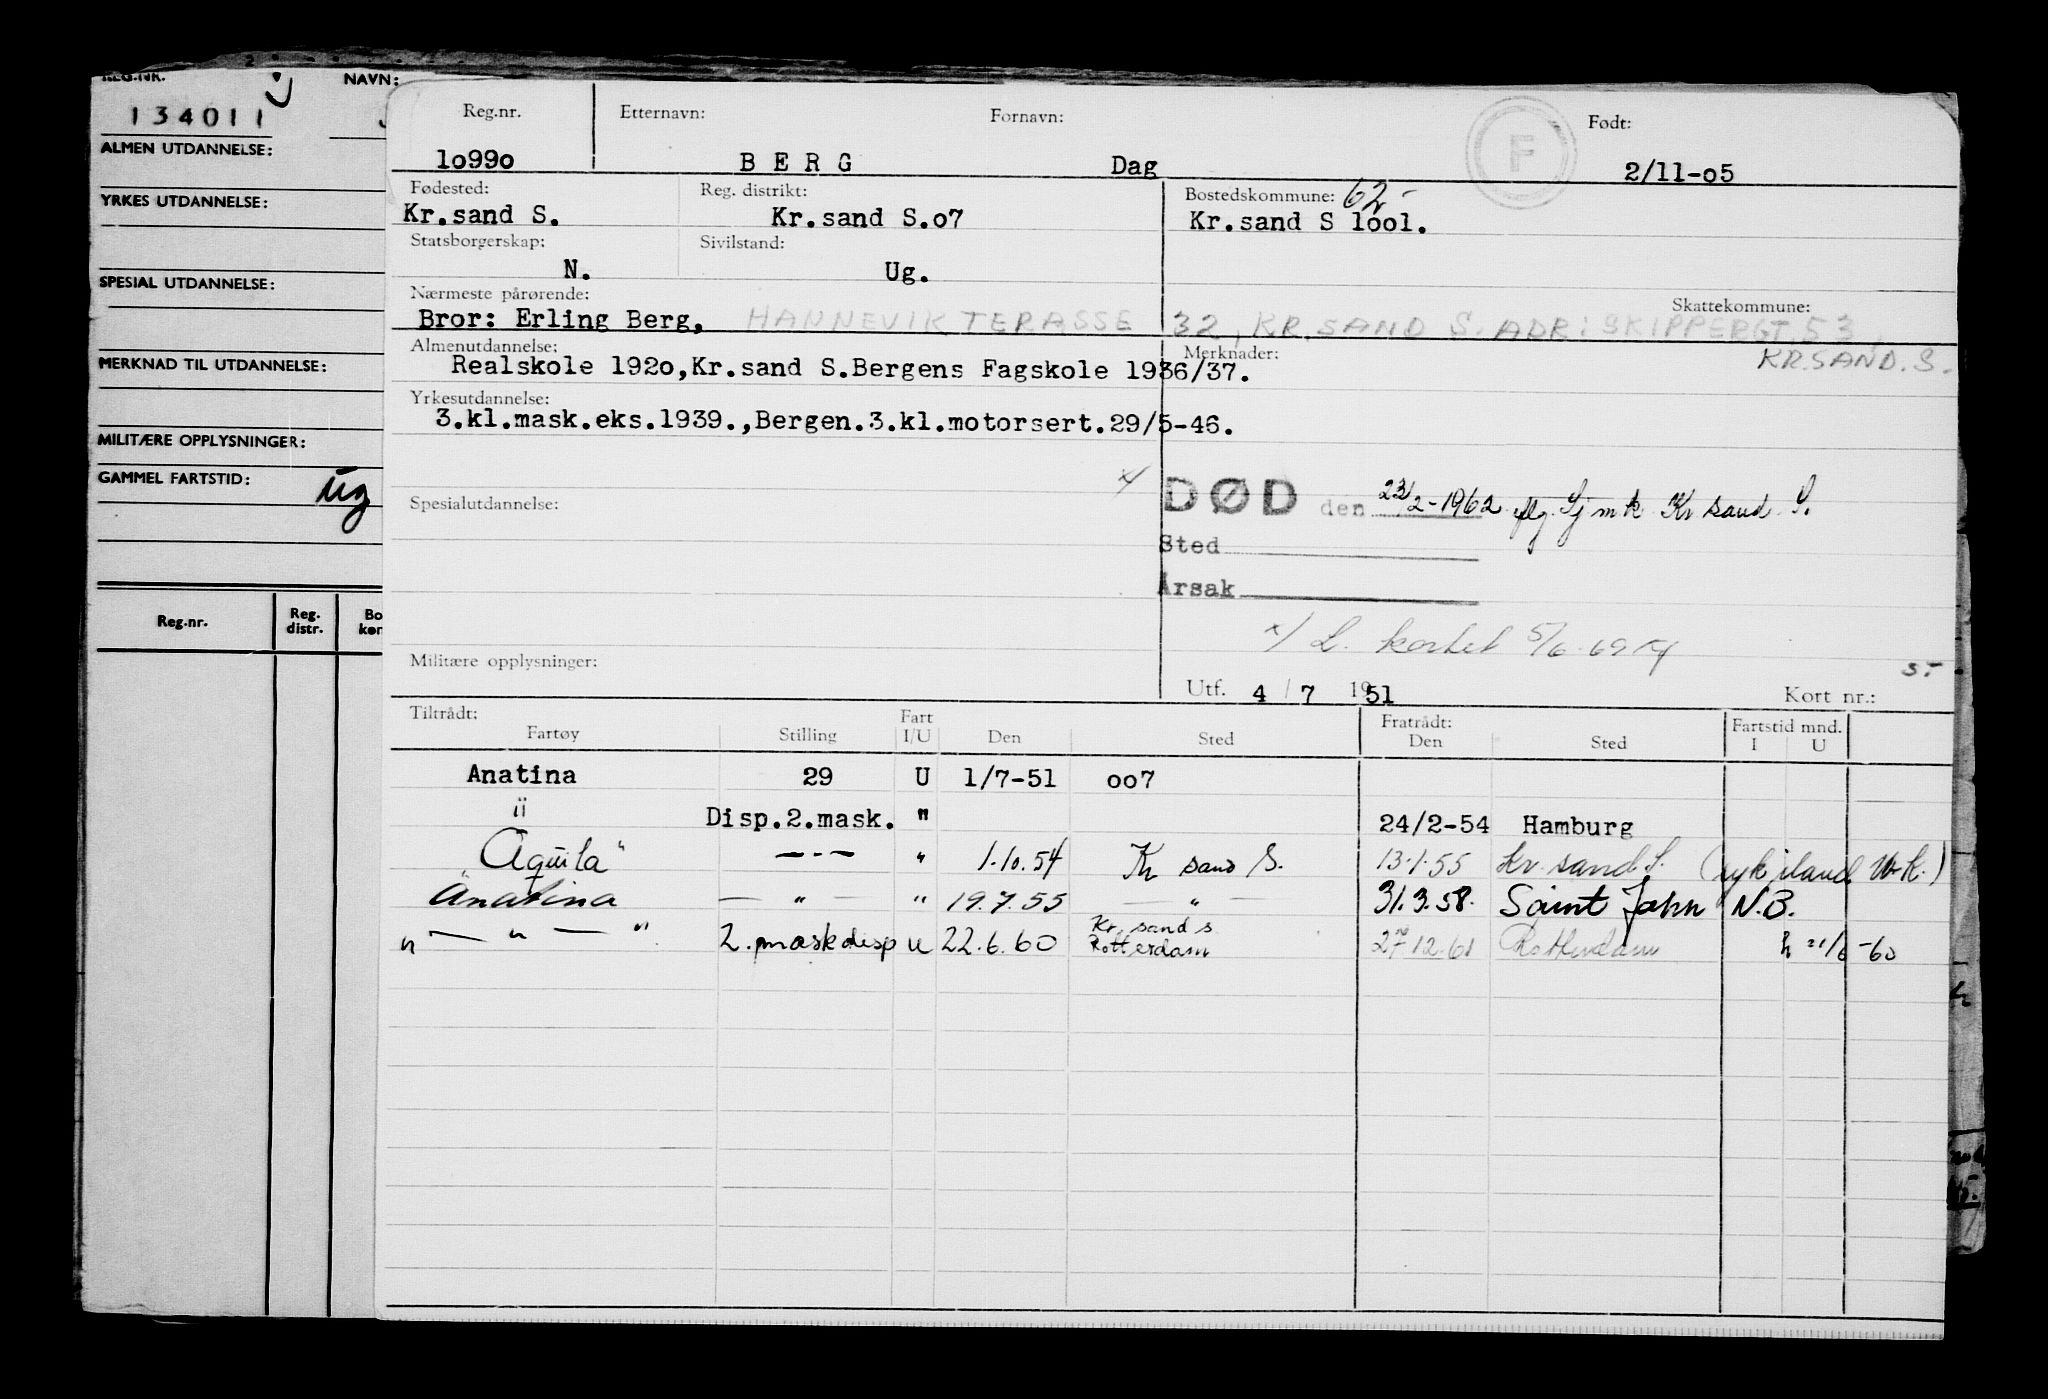 REG.NR.
NAVN:
134011
ALMEN UTDANNELSE:
YRKES UTDANNELSE:
SPESIAL UTDANNELSE:
MERKNAD TIL UTDANNELSE:
MILITÆRE OPPLYSNINGER:
GAMMEL FARTSTID: ug
Reg.nr. Reg. distr.
Reg.nr. Etternavn: Fornavn: F Født:
1o99o B E R G Dag 2/11-o5
Fødested: Reg. distrikt: Bostedskommune: 62-
Kr.sand S. Kr.sand S.o7 Kr.sand S 1oo1.
Statsborgerskap: Sivilstand:
N. Ug.
Nærmeste pårørende: Skattekommune:
Bror: Erling Berg, HANNEVIK TERASSE 32, KR.SAND S. ADR: SKIPPERGT. 53,
KR.SAND. S.
Almenutdannelse: Merknader:
Realskole 192o,Kr.sand S.Bergens Fagskole 1936/37.
Yrkesutdannelse:
3.kl.mask.eks.1939.,Bergen.3.kl.motorsert.29/5-46.
Spesialutdannelse:
DØD den 23/2-1962 iflg. Sjmk Kr sand S.
Sted
Årsak
x/ L. kortet 5/6-69
Militære opplysninger:
Utf. 4 / 7 1951 Kort nr.:
Tiltrådt: Fart Fratrådt: Fartstid mnd.
Fartøy Stilling I/U Den Sted Den Sted I U
Anatina 29 U 1/7-51 oo7
" Disp.2.mask. " 24/2-54 Hamburg
Aquila" —·— " 1.10.54 Kr sand S. 13.1.55 Kr. sand S.
"Anatina — " — " 19.7.55 — " — 31.3.58. Saint John N.B.
" — " — " 2. maskdisp u 22.6.60 Kr. sand s
Rotterdam 27/12.61 Rotterdam